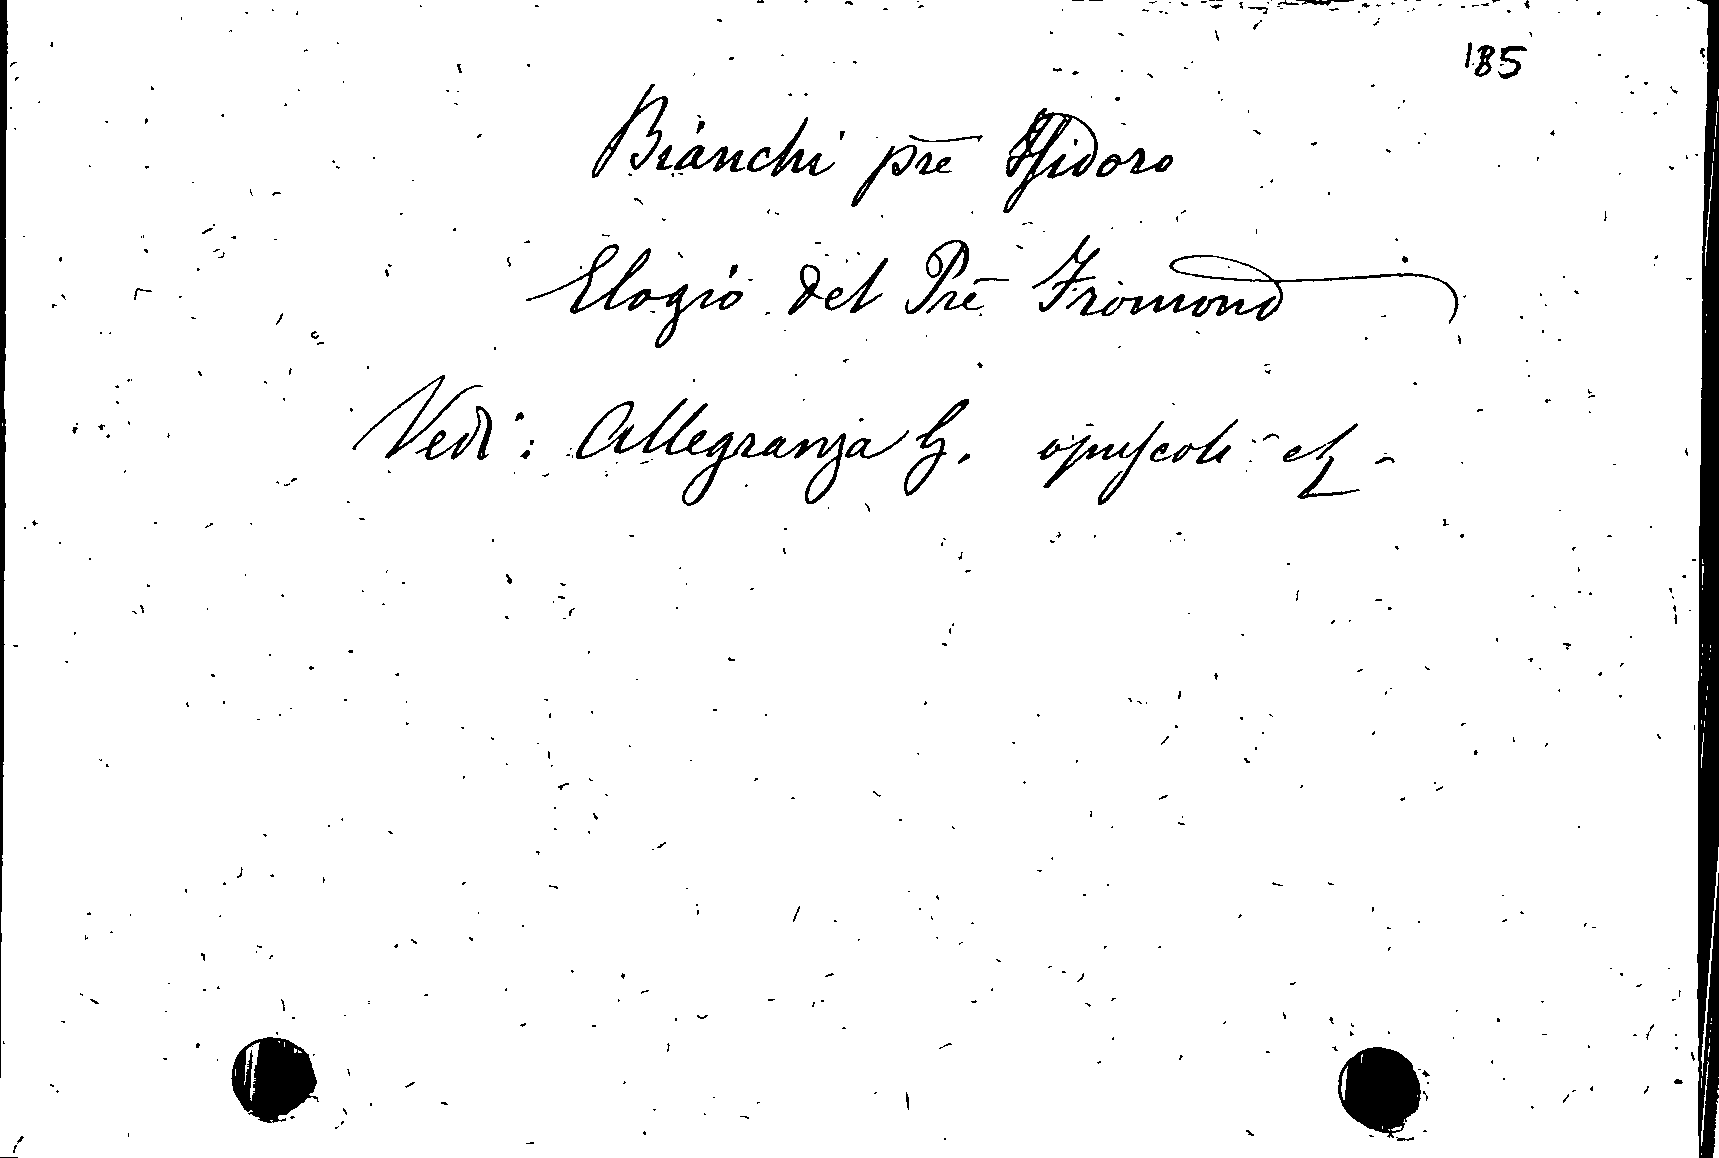 185
Bianchi pre Isidoro
Elogio del Pre Fromond
Vedi: Allegranza G. opuscoli etc.